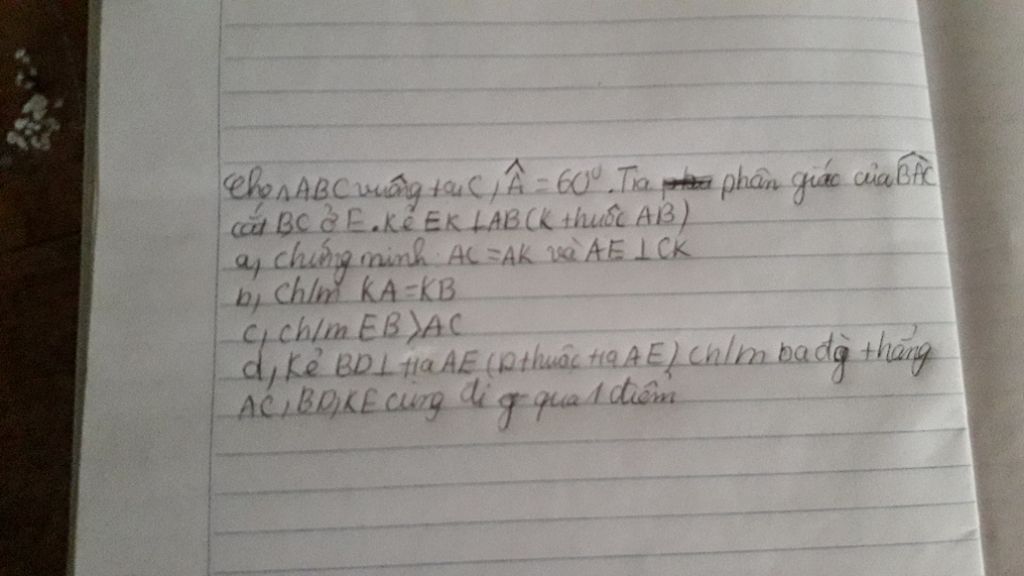 Cho △ABC vuông tại C, Â = 60⁰. Tia phân giác của BÂC
cắt BC ở E. Kẻ EK ⊥ AB (K thuộc AB)
a, chứng minh AC = AK và AE ⊥ CK
b, Ch/m KA = KB
c, ch/m EB > AC
d, Kẻ BD ⊥ tia AE (D thuộc tia AE) ch/m ba đg thẳng
AC, BD, KE cùng đi qua 1 điểm